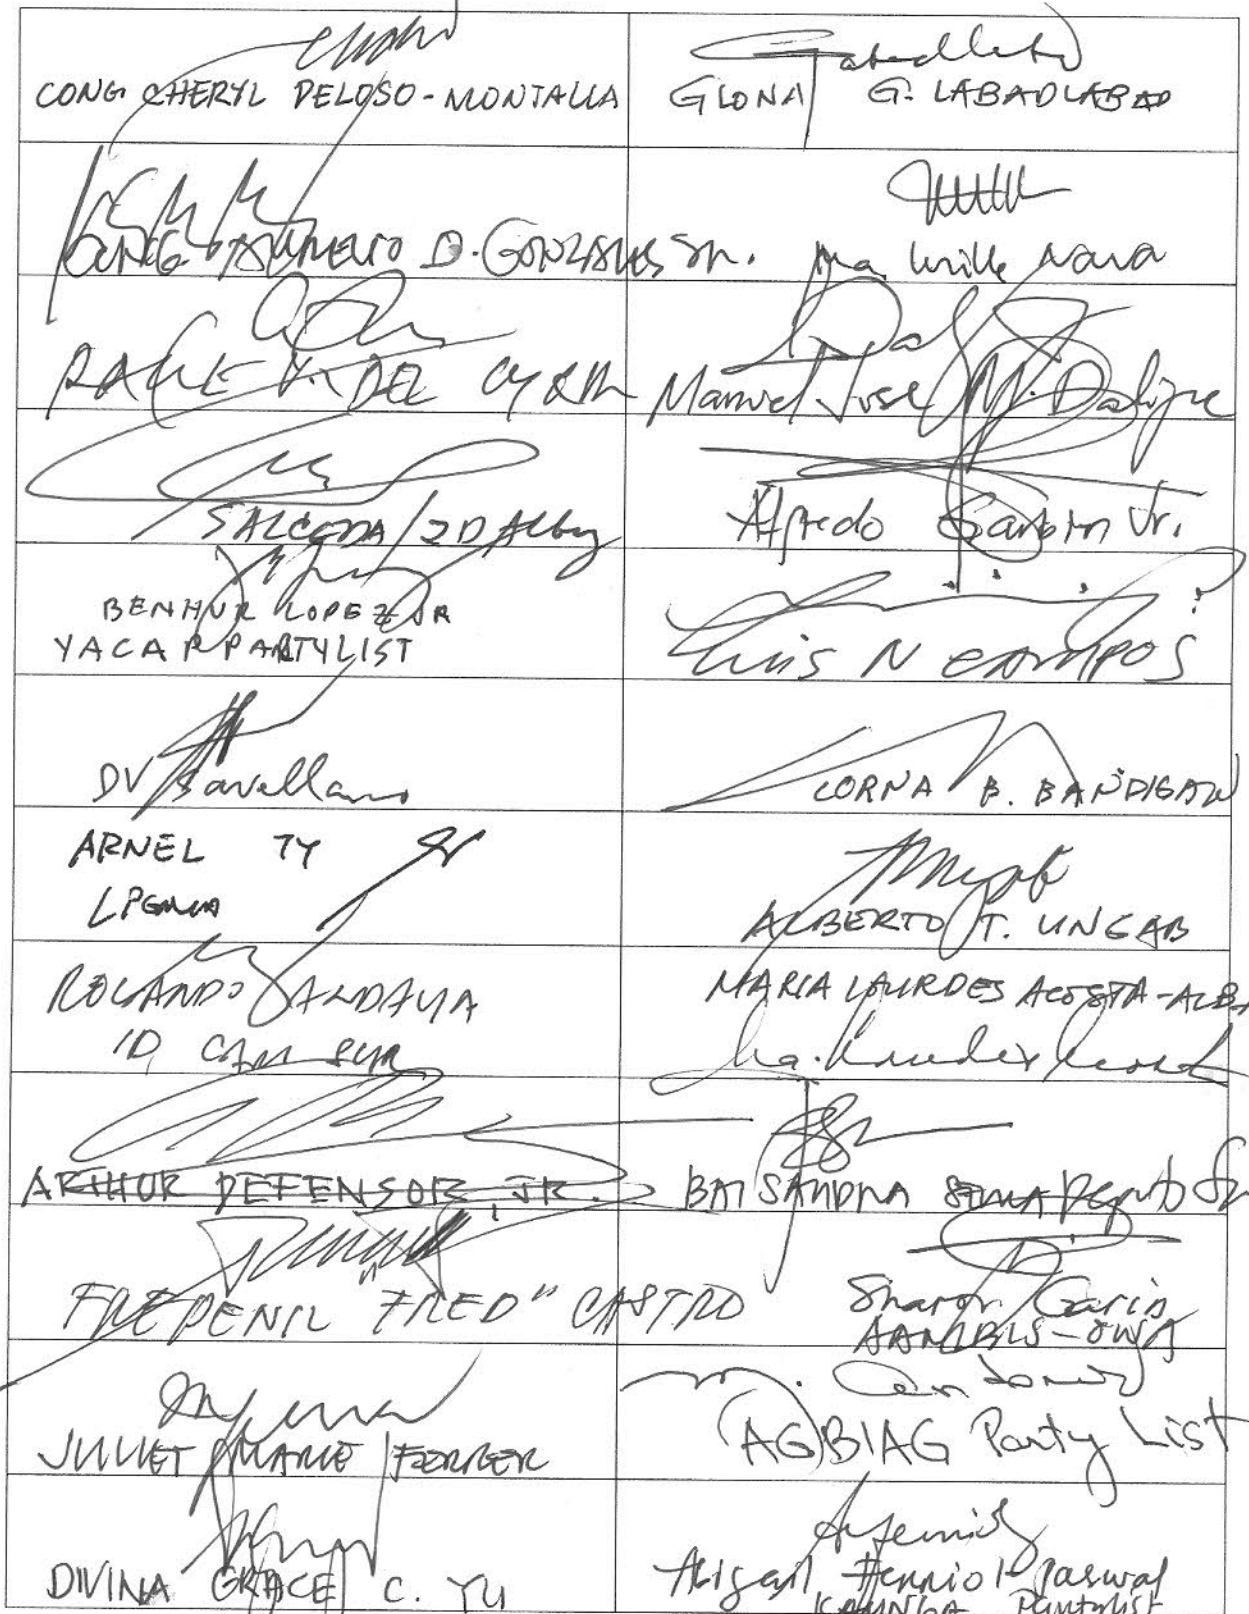 CONG. CHERYL DELOSO-MONTALLA
GLONA G. LABADLABAD
CONG. AURELIO D. GONZALES JR.
Ma. Lucille Nava
RAUL V. DEL MAR
Manuel Jose M. Dalipe
SALCEDA / 2D Albay
Alfredo Garbin Jr.
BENHUR LOPEZ JR
YACAP PARTYLIST
LUIS N CAMPOS
DV Savellano
LORNA B. BANDIGAN
ARNEL TY
LPGMA
ALBERTO T. UNGAB
ROLANDO ANDAYA
1D CAM SUR
MARIA LOURDES ACOSTA-ALBA
Ma. Lourdes Acosta
ARTHUR DEFENSOR, JR.
BAI SANDRA SEMA
FREDENIL "FRED" CASTRO
Sharon Garin
AAMBIS-OWA
JULIET MARIE FERRER
AGBIAG Party List
DIVINA GRACE C. YU
KALINGA Partylist